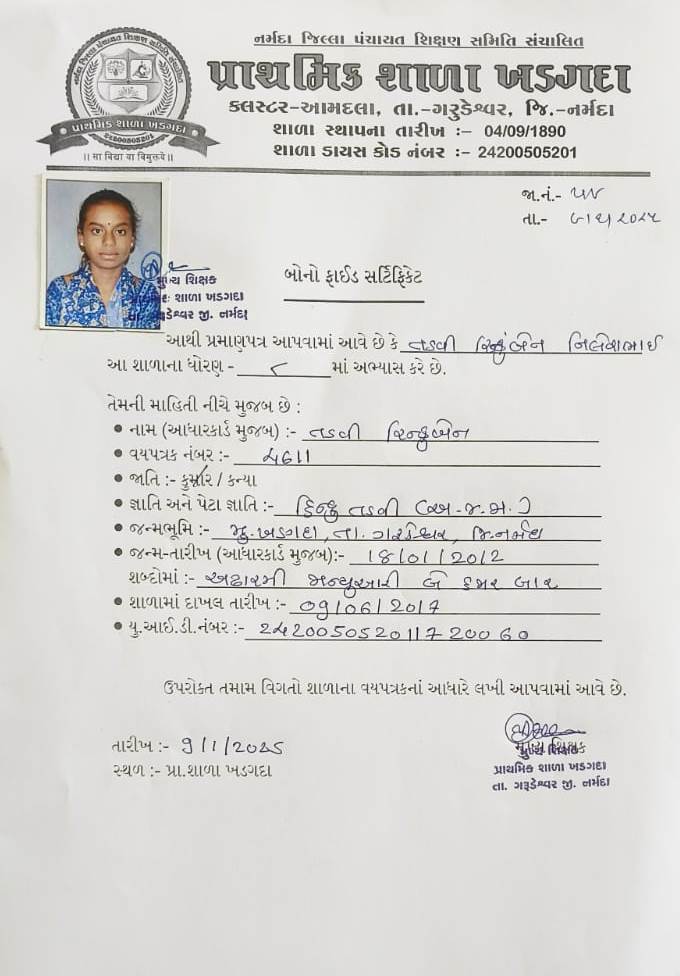 નર્મદા જિલ્લા પંચાયત શિક્ષણ સમિતિ સંચાલિત
પ્રાથમિક શાળા ખડગદા
ક્લસ્ટર-આમદલા, તા.-ગરુડેશ્વર, જિ.-નર્મદા
શાળા સ્થાપના તારીખ :– 04/09/1890
શાળા ડાયસ કોડ નંબર :– 24200505201
નર્મદા જિલ્લા પંચાયત શિક્ષણ સમિતિ સંચાલિત
પ્રાથમિક શાળા ખડગદા
24200505201
।। सा विद्या या विमुक्तये ।।
જા.નં.- ૫૪
તા.-
મુખ્ય શિક્ષક
પ્રાથમિક શાળા ખડગદા
તા. ગરૂડેશ્વર જી. નર્મદા
બોનો ફાઈડ સર્ટિફિકેટ
આથી પ્રમાણપત્ર આપવામાં આવે છે કે તડવી રિન્કુબેન નિલેશભાઈ
આ શાળાના ધોરણ - ૮ માં અભ્યાસ કરે છે.
તેમની માહિતી નીચે મુજબ છે :
• નામ (આધારકાર્ડ મુજબ) :- તડવી રિન્કુબેન
• વયપત્રક નંબર :- 4611
• જાતિ :- કુમાર / કન્યા
• જ્ઞાતિ અને પેટા જ્ઞાતિ :- હિન્દુ તડવી (અ.જ.જા)
• જન્મભૂમિ :- મુ.ખડગદા, તા. ગરુડેશ્વર, જિ.નર્મદા
• જન્મ-તારીખ (આધારકાર્ડ મુજબ):- 18/01/2012
શબ્દોમાં :- અઢારમી જાન્યુઆરી બે હજાર બાર
• શાળામાં દાખલ તારીખ :- 09/06/2017
• યુ.આઈ.ડી.નંબર :- 242005052011720060
ઉપરોક્ત તમામ વિગતો શાળાના વયપત્રકનાં આધારે લખી આપવામાં આવે છે.
તારીખ :- 9/1/2025
સ્થળ :- પ્રા.શાળા ખડગદા
મુખ્ય શિક્ષક
મુખ્ય શિક્ષક
પ્રાથમિક શાળા ખડગદા
તા. ગરૂડેશ્વર જી. નર્મદા